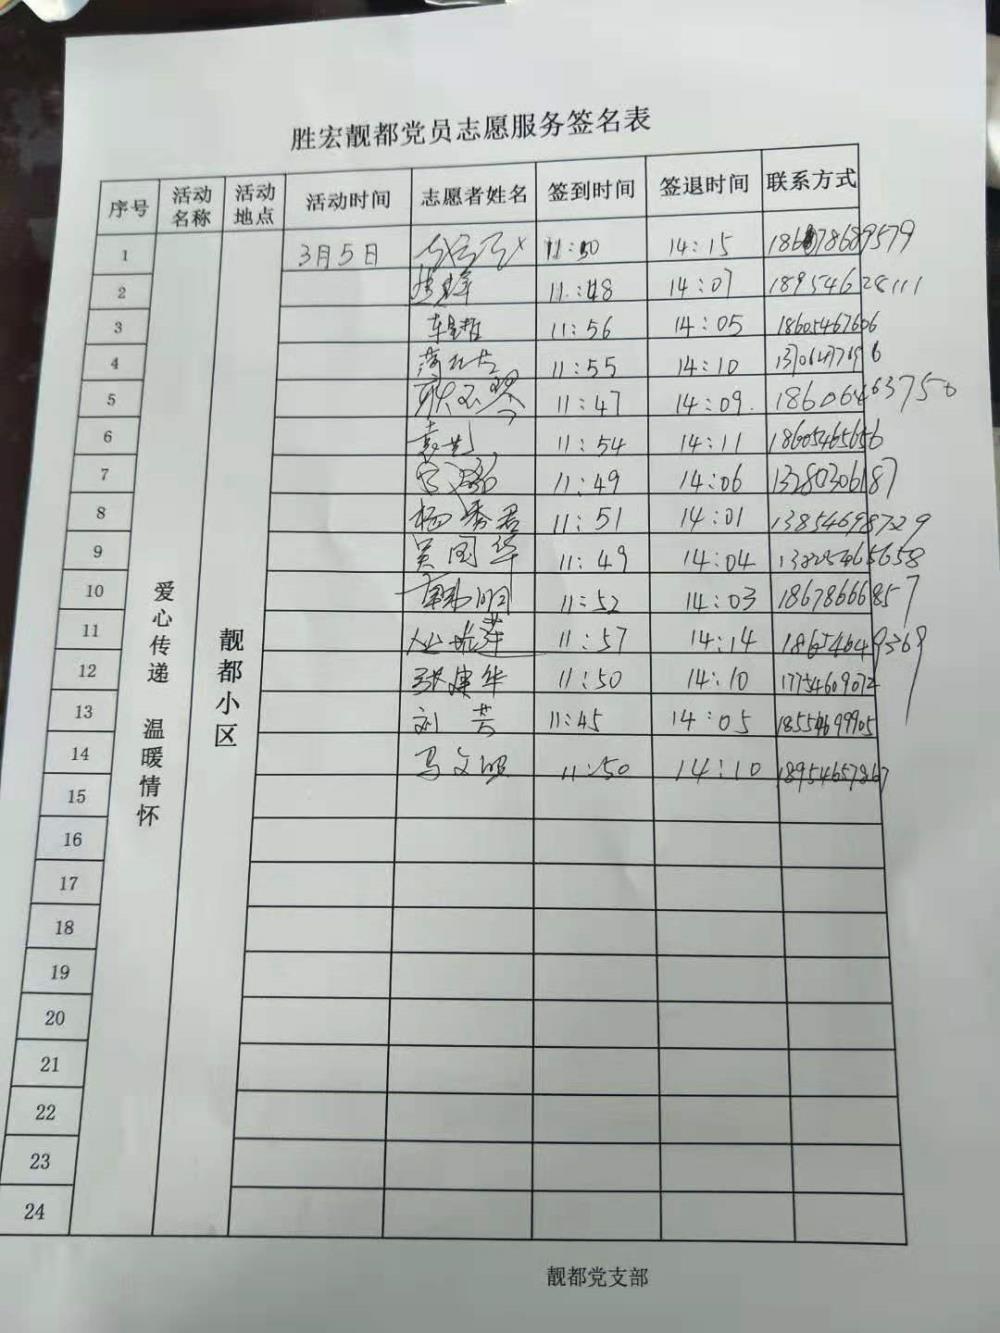 胜宏靓都党员志愿服务签名表
序号 活动名称 活动地点 活动时间 志愿者姓名 签到时间 签退时间 联系方式
爱心传递 温暖情怀
靓都小区
1 3月5日 14:15
2 11:48 14:07 18954628111
3 11:56 14:05 18605467606
4 11:55 14:10
5 11:47 14:09 18606463750
6 11:54 14:11 18605465656
7 11:49 14:06 13280306187
8 杨秀君 11:51 14:01 13854698729
9 吴国华 11:49 14:04
10 韩明 11:52 14:03 18678666857
11 11:57 14:14
12 张建华 11:50 14:10 17754609072
13 刘芳 11:45 14:05 18554699905
14 马文明 11:50 14:10 18954657867
15
16
17
18
19
20
21
22
23
24
靓都党支部